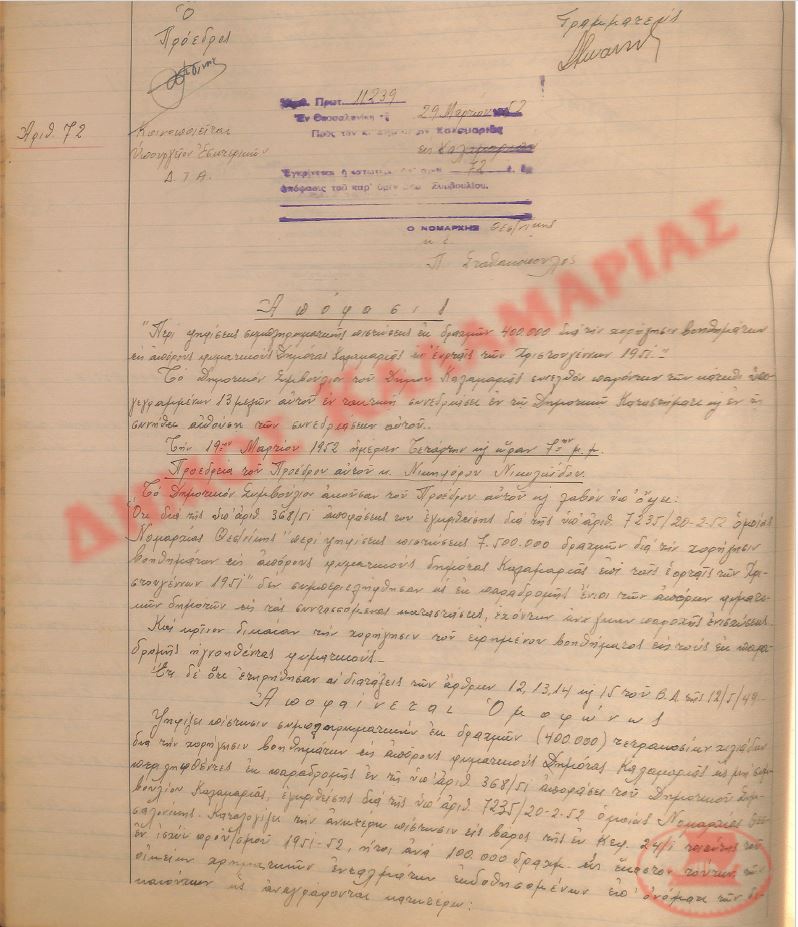 Ὁ
Πρόεδρος
Γραμματεύς
Ἀριθ. 72
Κοινοποιεῖται
Ὑπουργεῖον Ἐσωτερικῶν
Δ.Τ.Α.
Ἀριθ. Πρωτ. 11239
Ἐν Θεσσαλονίκῃ τῇ 29 Μαρτίου 1952
Πρὸς τὸν κ. Δήμαρχον Καλαμαριᾶς
εἰς Καλαμαριάν
Ἐγκρίνεται ἡ κατωτέρω ὑπ' ἀριθ. 72 ἐ. ἔ.
ἀπόφασις τοῦ καθ' ὑμᾶς Δημ. Συμβουλίου.
Ο ΝΟΜΑΡΧΗΣ Θεσ/νίκης
κ.ἐ.
Π. Σταθακόπουλος
Ἀπόφασις
"Περὶ ψηφίσεως συμπληρωματικῆς πιστώσεως ἐκ δραχμῶν 400.000 διὰ τὴν χορήγησιν βοηθημάτων
εἰς ἀπόρους φυματικοὺς δημότας Καλαμαριᾶς ἐπ' ἑορταῖς τῶν Χριστουγέννων 1951."
Τὸ Δημοτικὸν Συμβούλιον τοῦ Δήμου Καλαμαριᾶς συνελθὸν παρόντων τῶν κάτωθι ὑπο-
γεγραμμένων 13 μελῶν αὐτοῦ ἐν τακτικῇ συνεδριάσει ἐν τῷ Δημοτικῷ Καταστήματι κ ἐν τῇ
συνήθει αἰθούσῃ τῶν συνεδριάσεων αὐτοῦ.
Τὴν 19ην Μαρτίου 1952 ἡμέραν Τετάρτην κ ὥραν 7ην μ.μ.
Προεδρείᾳ τοῦ Προέδρου αὐτοῦ κ. Νικηφόρου Νικολαΐδου.
Τὸ Δημοτικὸν Συμβούλιον ἀκοῦσαν τοῦ Προέδρου αὐτοῦ κ λαβὸν ὑπ' ὄψει:
Ὅτι διὰ τῆς ὑπ' ἀριθ. 368/51 ἀποφάσεώς του ἐγκριθείσης διὰ τῆς ὑπ' ἀριθ. 7235/20-2-52 ὁμοίας
Νομαρχίας Θεσ/νίκης "περὶ ψηφίσεως πιστώσεως 7.500.000 δραχμῶν διὰ τὴν χορήγησιν
βοηθημάτων εἰς ἀπόρους φυματικοὺς δημότας Καλαμαριᾶς ἐπὶ ταῖς ἑορταῖς τῶν Χρι-
στουγέννων 1951" δὲν συμπεριελήφθησαν ὡς ἐκ παραδρομῆς ἔνιοι τῶν ἀπόρων φυματι-
κῶν δημοτῶν εἰς τὰς συντασσομένας καταστάσεις, ἐχόντων ἀνάγκην παροχῆς ἐνισχύσεως.
Καὶ κρῖνον δικαίαν τὴν χορήγησιν τοῦ εἰρημένου βοηθήματος εἰς τοὺς ἐκ παρα-
δρομῆς ἀγνοηθέντας φυματικούς.
Ἔτι δὲ ὅτι ἐτηρήθησαν αἱ διατάξεις τῶν ἄρθρων 12, 13, 14 κ 15 τοῦ Β.Δ. τῆς 12/5/49.
Ἀποφαίνεται Ὁμοφώνως
Ψηφίζει πίστωσιν συμπληρωματικὴν ἐκ δραχμῶν (400.000) τετρακοσίων χιλιάδων
διὰ τὴν χορήγησιν βοηθημάτων εἰς ἀπόρους φυματικοὺς Δημότας Καλαμαριᾶς ὡς μὴ συμ-
περιληφθέντες ἐκ παραδρομῆς ἐν τῇ ὑπ' ἀριθ. 368/51 ἀποφάσει τοῦ Δημοτικοῦ Συμ-
βουλίου Καλαμαριᾶς, ἐγκριθείσης διὰ τῆς ὑπ' ἀριθ. 7235/20-2-52 ὁμοίας Νομαρχίας Θεσ-
σαλονίκης. Καταλογίζει τὴν ἀνωτέρω πίστωσιν εἰς βάρος τῆς ἐν Κεφ. 24/1 τοιαύτης τοῦ
ἐν ἰσχύι προϋ/σμοῦ 1951-52, ἤτοι ἀνὰ 100.000 δραχμ. εἰς ἕκαστον τούτων τῶν
οἰκείων χρηματικῶν ἐνταλμάτων ἐκδοθησομένων ἐπ' ὀνόματι τῶν δι-
καιούχων ὡς ἀναγράφονται κατωτέρω:
ΔΗΜΟΣ ΚΑΛΑΜΑΡΙΑΣ